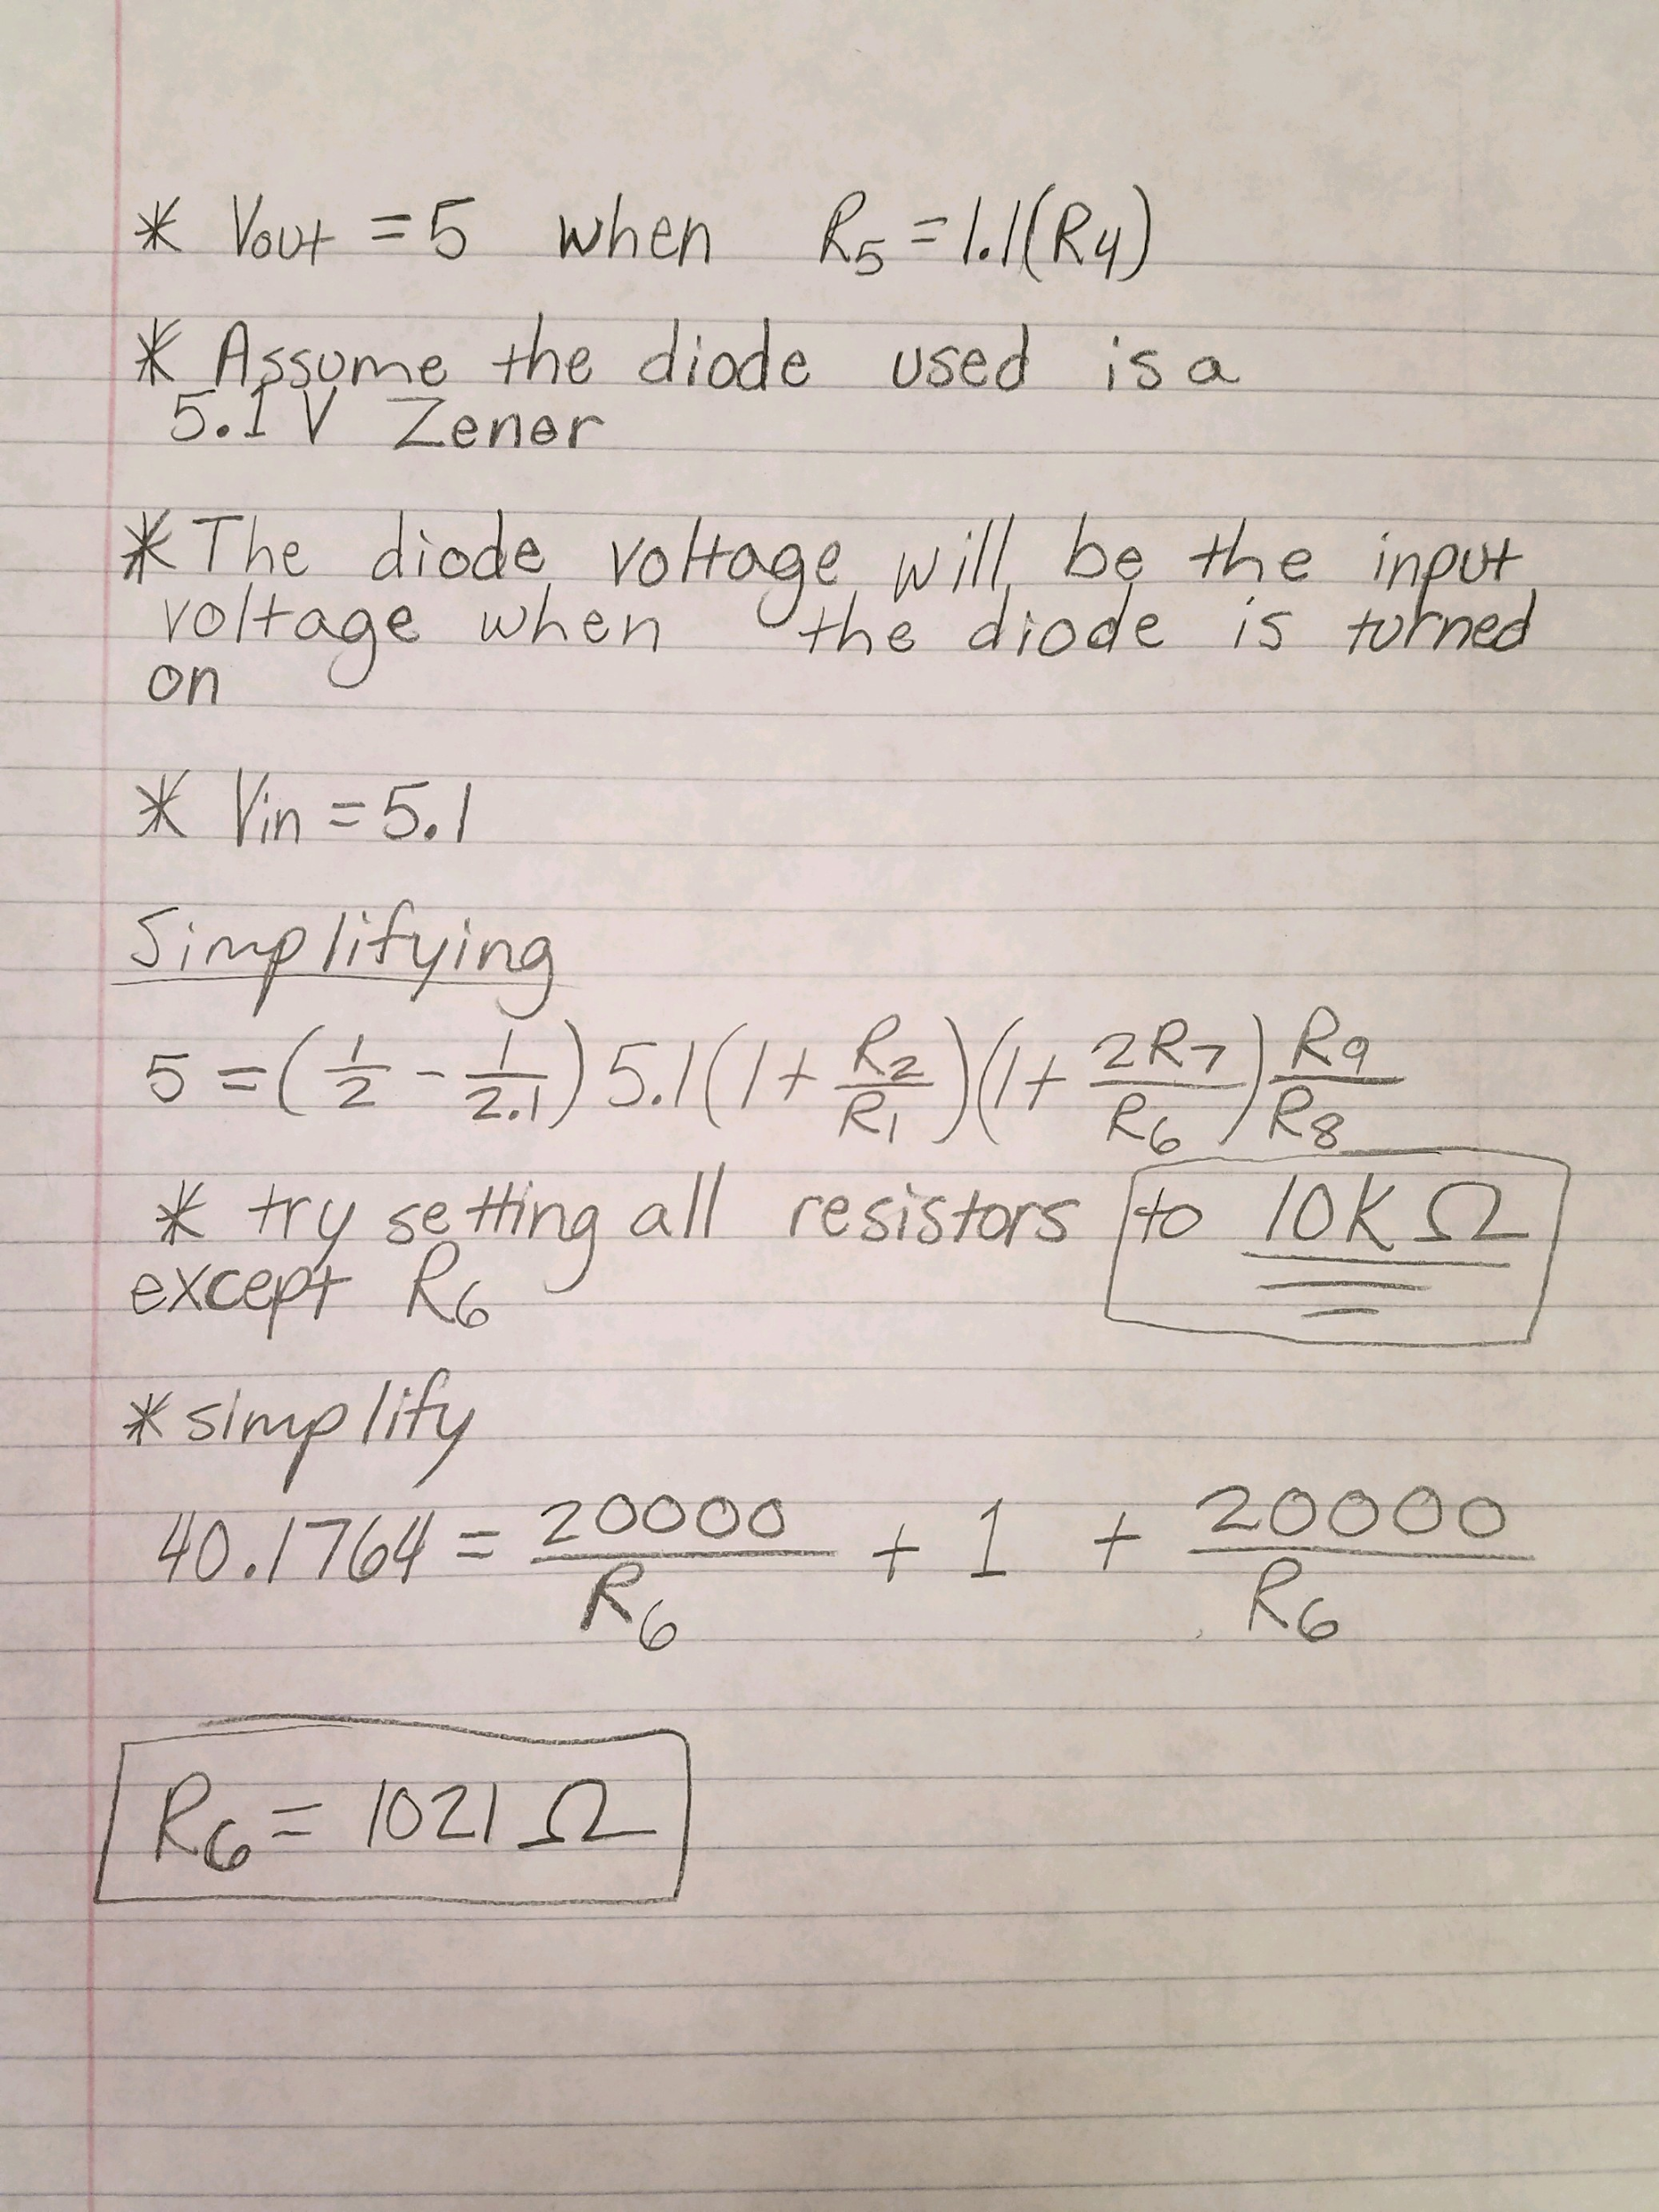 * Vout = 5 when R5 = 1.1(R4)
* Assume the diode used is a
5.1 V Zener
* The diode voltage will be the input
voltage when the diode is turned
on
* Vin = 5.1
Simplifying
5 = (1/2 - 1/2.1) 5.1 (1 + R2/R1)(1 + 2R7/R6) R9/R8
* try setting all resistors to 10K Ω
except R6
* simplify
40.1764 = 20000/R6 + 1 + 20000/R6
R6 = 1021 Ω